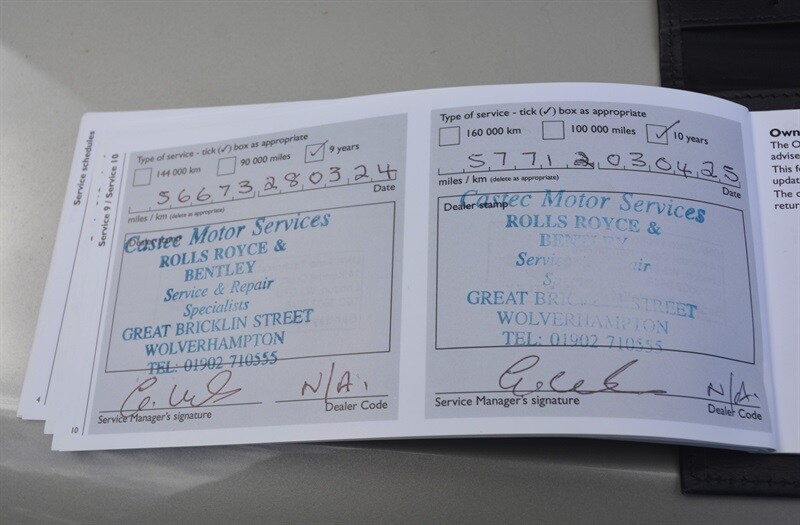 Service schedules
Service 9 / Service 10
Type of service - tick (✓) box as appropriate
144 000 km 90 000 miles ✓ 9 years
56673 280324
miles / km (delete as appropriate) Date
Dealer stamp
Castec Motor Services
ROLLS ROYCE &
BENTLEY
Service & Repair
Specialists
GREAT BRICKLIN STREET
WOLVERHAMPTON
TEL: 01902 710555
N/A.
Service Manager's signature Dealer Code
4
10
Type of service - tick (✓) box as appropriate
160 000 km 100 000 miles ✓ 10 years
57712 030425
miles / km (delete as appropriate) Date
Dealer stamp
Castec Motor Services
ROLLS ROYCE &
BENTLEY
GREAT BRICKLIN STREET
WOLVERHAMPTON
TEL: 01902 710555
N/A.
Service Manager's signature Dealer Code
Own
The O
advise
This f
updat
The c
retur